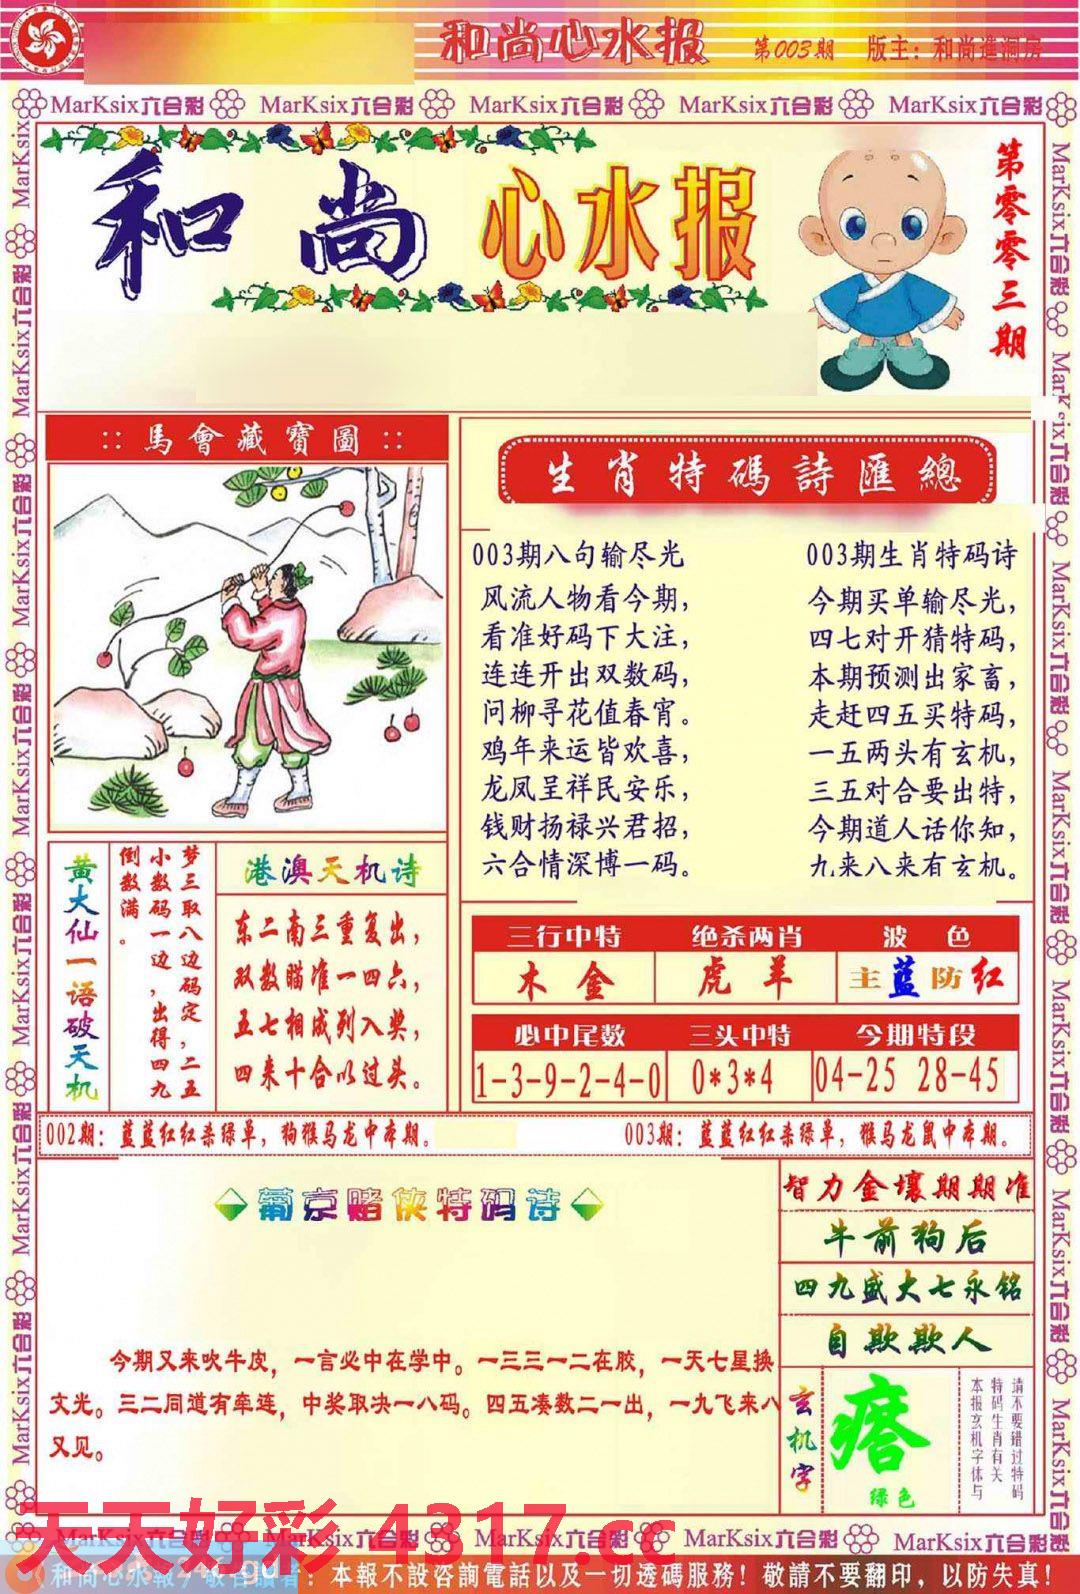 和尚心水报 第003期 版主：和尚進洞房
MarKsix六合彩 MarKsix六合彩 MarKsix六合彩 MarKsix六合彩 MarKsix六合彩
和尚心水报
第零零三期
::馬會藏寶圖::
生肖特碼詩匯總
003期八句输尽光
风流人物看今期，
看准好码下大注，
连连开出双数码，
问柳寻花值春宵。
鸡年来运皆欢喜，
龙凤呈祥民安乐，
钱财扬禄兴君招，
六合情深博一码。
003期生肖特码诗
今期买单输尽光，
四七对开猜特码，
本期预测出家畜，
走赶四五买特码，
一五两头有玄机，
三五对合要出特，
今期道人话你知，
九来八来有玄机。
黄大仙一语破天机
梦三取八边码定，二五
小数码一边，出得四九
倒数满。
港澳天机诗
东二南三重复出，
双数瞄准一四六，
五七相成列入奖，
四来十合以过头。
三行中特 绝杀两肖 波色
木金 虎羊 主蓝防红
必中尾数 三头中特 今期特段
1-3-9-2-4-0 0*3*4 04-25 28-45
002期：蓝蓝红红杀绿单，狗猴马龙中本期。
003期：蓝蓝红红杀绿单，猴马龙鼠中本期。
葡京赌侠特码诗
今期又来吹牛皮，一言必中在学中。一三三一二在胶，一天七星换
文光。三二同道有牵连，中奖取决一八码。四五凑数二一出，一九飞来八
又见。
智力金壤期期准
牛前狗后
四九盛大七永铭
自欺欺人
玄机字
瘩
绿色
请不要错过特码
特码生肖有关
本报玄机字体与
MarKsix六合彩 MarKsix六合彩 MarKsix六合彩 MarKsix六合彩 MarKsix六合彩
天天好彩 4317.cc
：本報不設咨詢電話以及一切透碼服務！敬請不要翻印，以防失真！